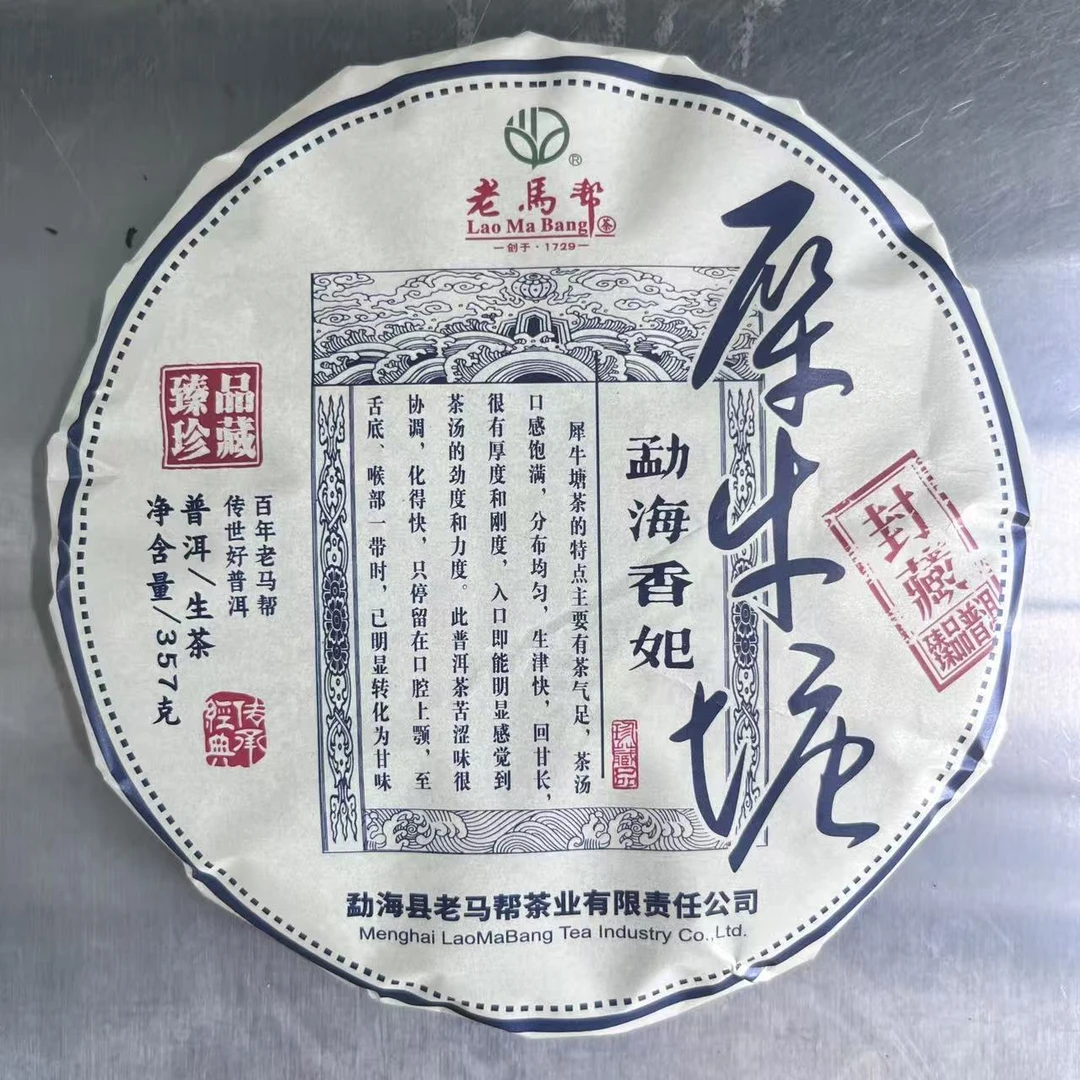 老馬帮
Lao Ma Bang 茶
—创于·1729—
®
犀牛塘
封藏
臻品普洱
勐海香妃
珍藏品
犀牛塘茶的特点主要有茶气足，茶汤
口感饱满，分布均匀，生津快，回甘长，
很有厚度和刚度，入口即能明显感觉到
茶汤的劲度和力度。此普洱茶苦涩味很
协调，化得快，只停留在口腔上颚，至
舌底、喉部一带时，已明显转化为甘味
臻品
珍藏
百年老马帮
传世好普洱
普洱/生茶
净含量/357克
传承
經典
勐海县老马帮茶业有限责任公司
Menghai LaoMaBang Tea Industry Co.,Ltd.